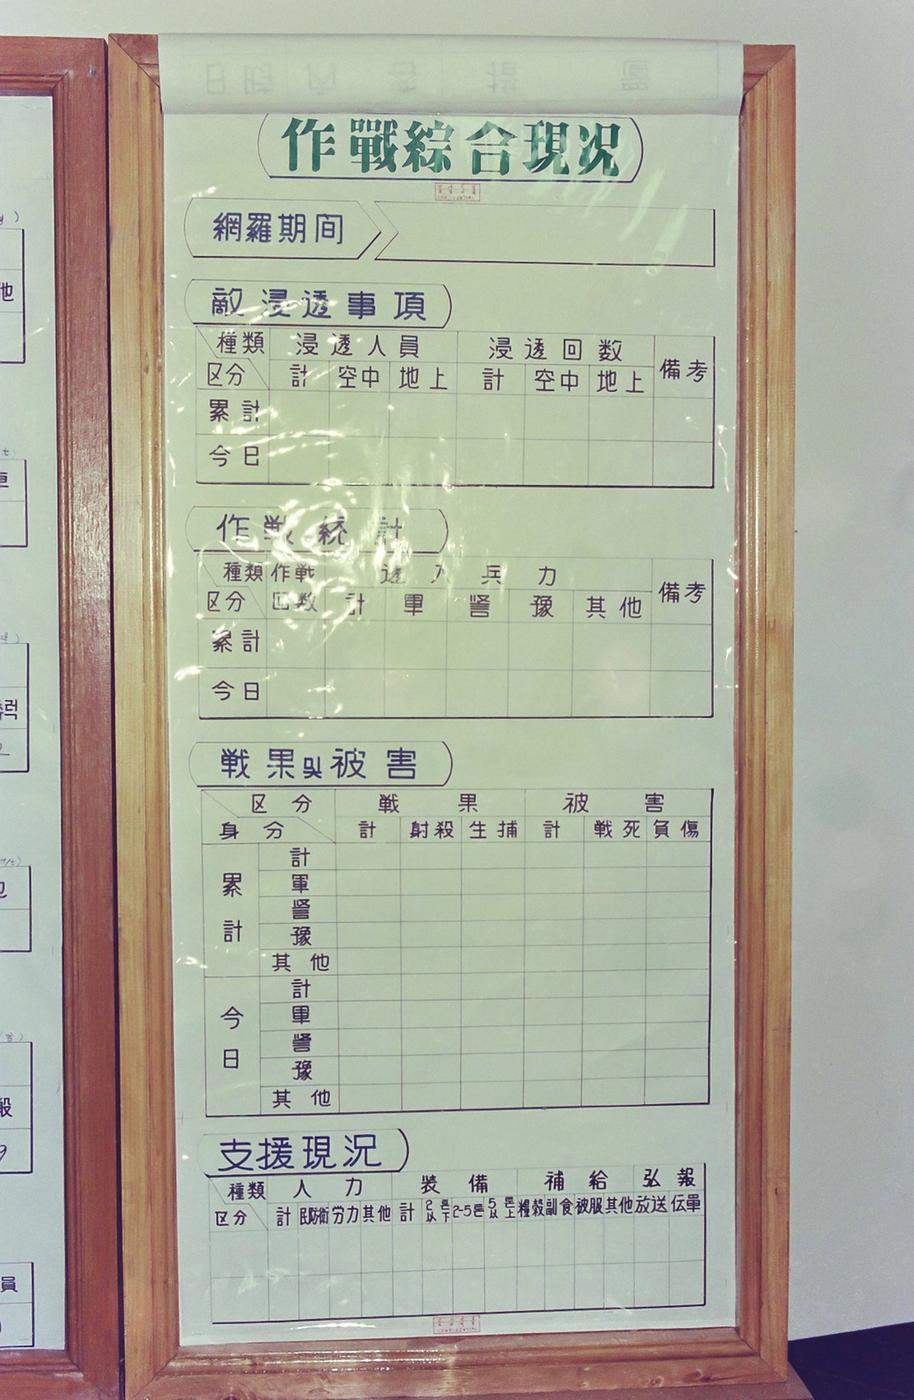 作戰綜合現況
網羅期间
敵浸透事項
種類 浸透人員 浸透回数 備考
区分 計 空中 地上 計 空中 地上
累計
今日
作戦統計
種類 作戦 透入兵力 備考
区分 回数 計 軍 警 豫 其他
累計
今日
戦果및被害
区分 戦果 被害
身分 計 射殺 生捕 計 戦死 負傷
累計 計
軍
警
豫
其他
今日 計
軍
警
豫
其他
支援現況
種類 人力 装備 補給 弘報
区分 計 民防衛 労力 其他 計 2屯以下 2-5屯 5屯以上 糧穀 副食 被服 其他 放送 伝單